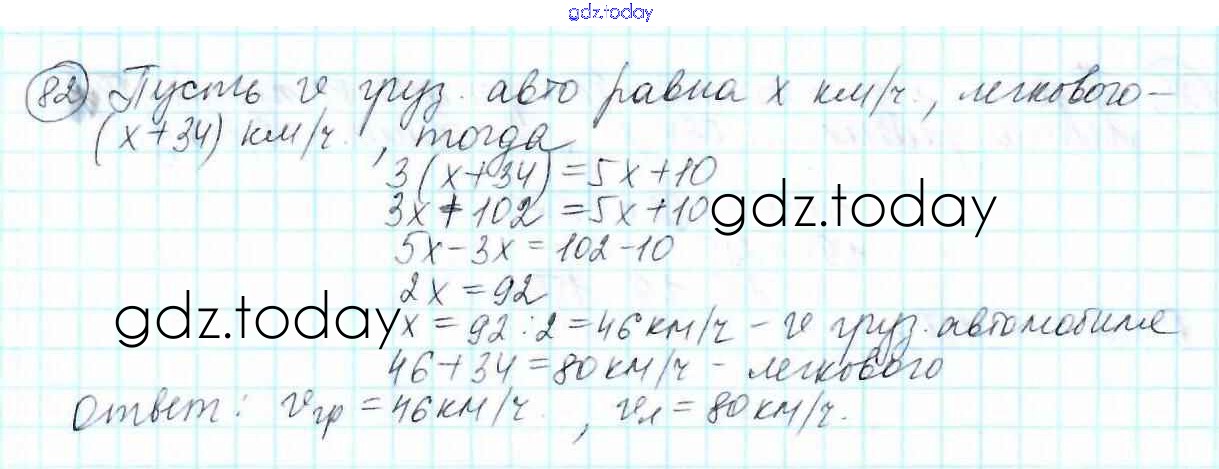 gdz.today
82) Пусть v груз. авто равна x км/ч., легкового -
(x+34) км/ч., тогда
3(x+34)=5x+10
3x+102=5x+10
gdz.today
5x-3x=102-10
2x=92
gdz.today
x=92:2=46км/ч - v груз. автомобиле
46+34=80км/ч - легкового
Ответ: vгр=46км/ч., vл=80км/ч.